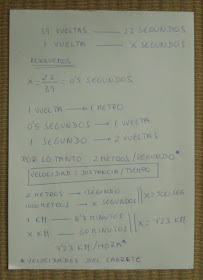 39 VUELTAS —— 22 SEGUNDOS
1 VUELTA —— X SEGUNDOS
RESOLVEMOS
X = 22/39 = 0'5 SEGUNDOS
1 VUELTA → 1 METRO
0'5 SEGUNDOS → 1 VUELTA
1 SEGUNDO → 2 VUELTAS
POR LO TANTO: 2 METROS/SEGUNDO*
VELOCIDAD = DISTANCIA/TIEMPO
2 METROS → 1 SEGUNDO
1000 METROS → X SEGUNDOS X=500 SEG
1 KM — 8'3 MINUTOS
X KM — 60 MINUTOS X = 7'23 KM
7'23 KM/HORA*
* VELOCIDADES DEL CARRETE